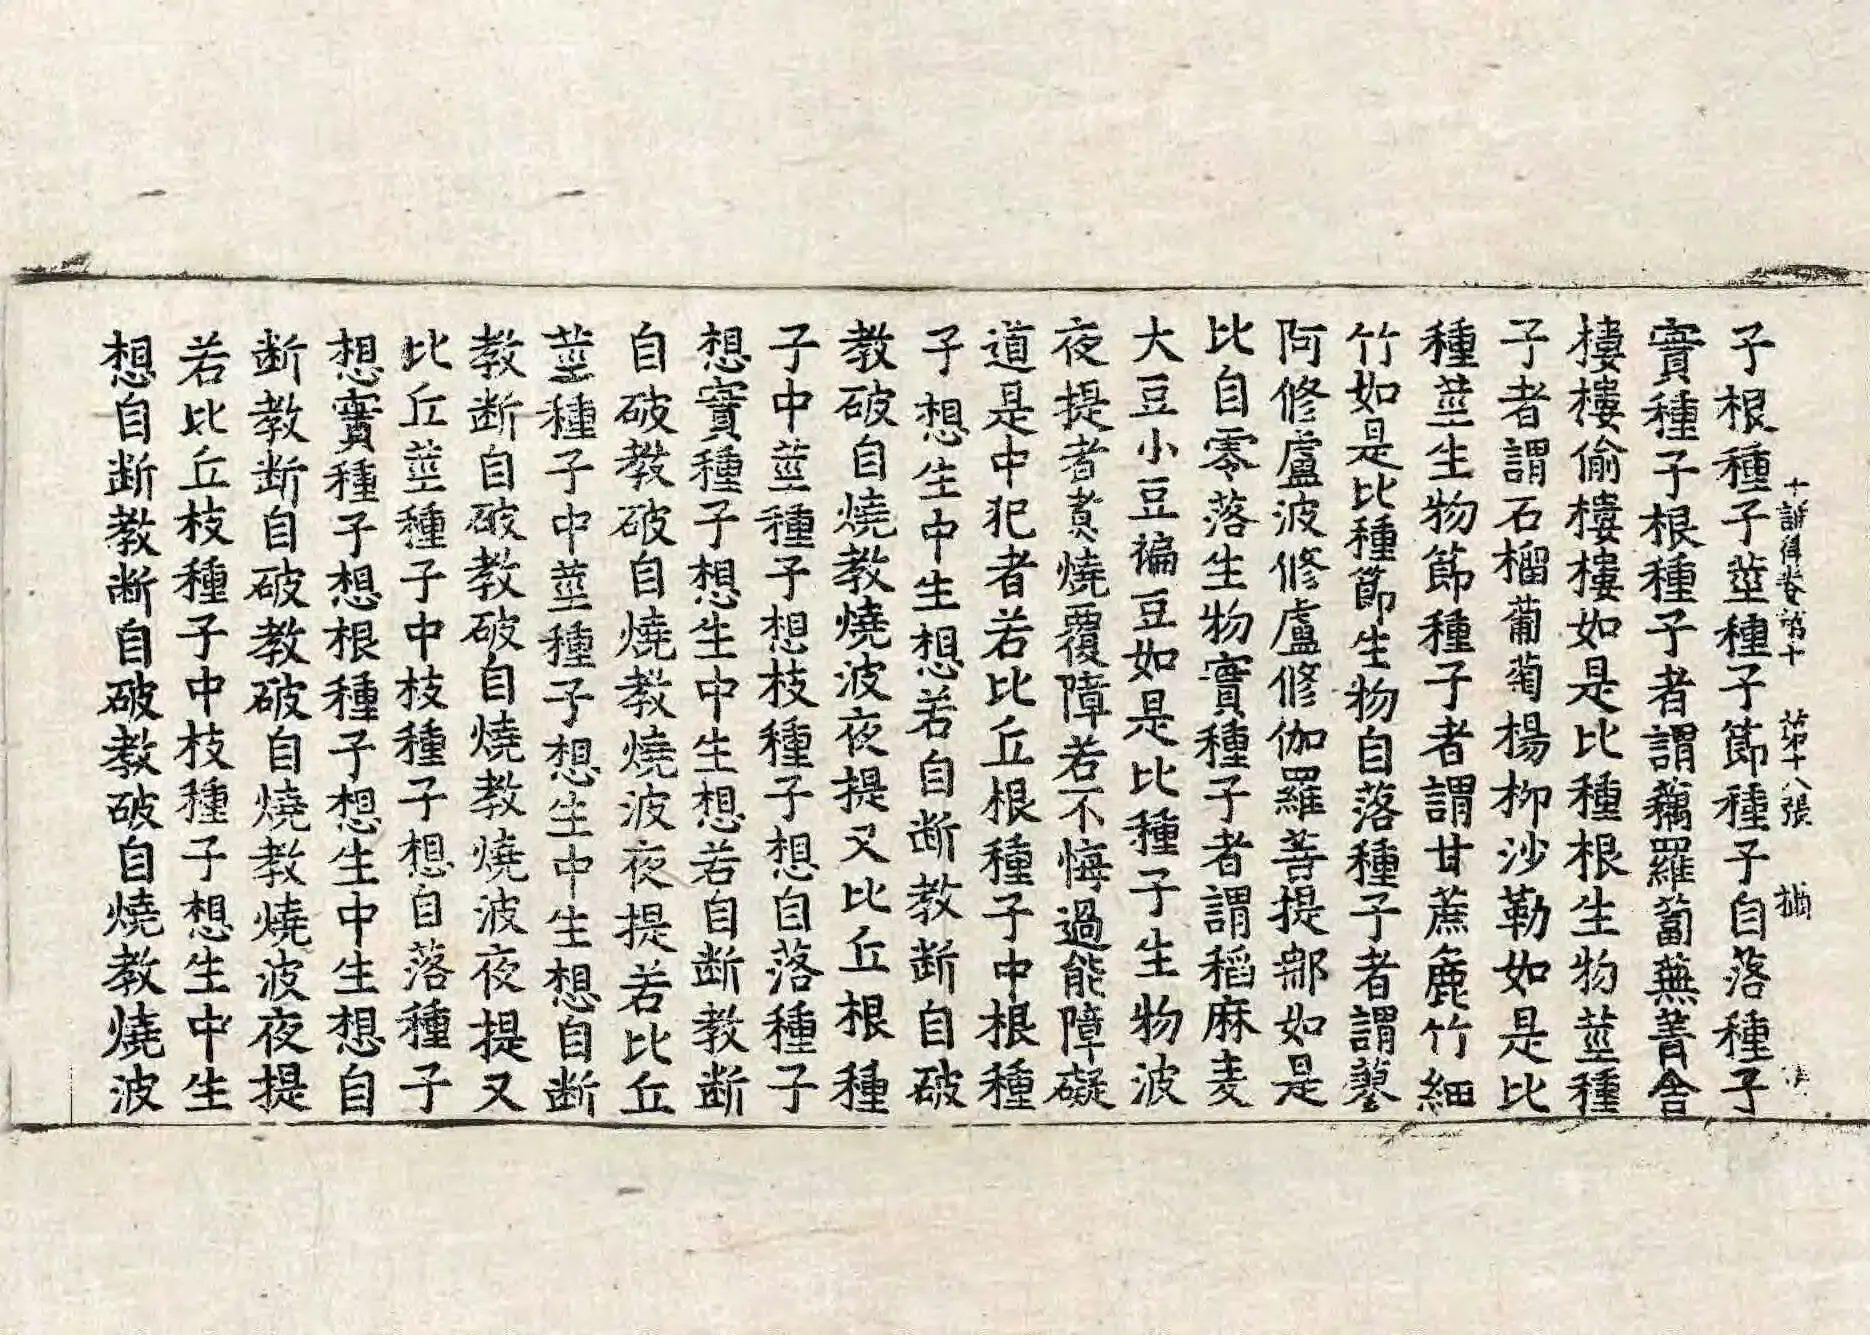 十誦律卷第十 第十八張 猶
子根種子莖種子節種子自落種子
實種子根種子者謂藕羅蔔蕪菁舍
樓樓偷樓樓如是比種根生物莖種
子者謂石榴葡萄楊柳沙勒如是比
種莖生物節種子者謂甘蔗麁竹細
竹如是比種節生物自落種子者謂蓼
阿修盧波修盧修伽羅菩提那如是
比自零落生物實種子者謂稻麻麦
大豆小豆褊豆如是比種子生物波
夜提者煑燒覆障若不悔過能障礙
道是中犯者若比丘根種子中根種
子想生中生想若自断教断自破
教破自燒教燒波夜提又比丘根種
子中莖種子想枝種子想自落種子
想實種子想生中生想若自断教断
自破教破自燒教燒波夜提若比丘
莖種子中莖種子想生中生想自断
教断自破教破自燒教燒波夜提又
比丘莖種子中枝種子想自落種子
想實種子想根種子想生中生想自
断教断自破教破自燒教燒波夜提
若比丘枝種子中枝種子想生中生
想自断教断自破教破自燒教燒波